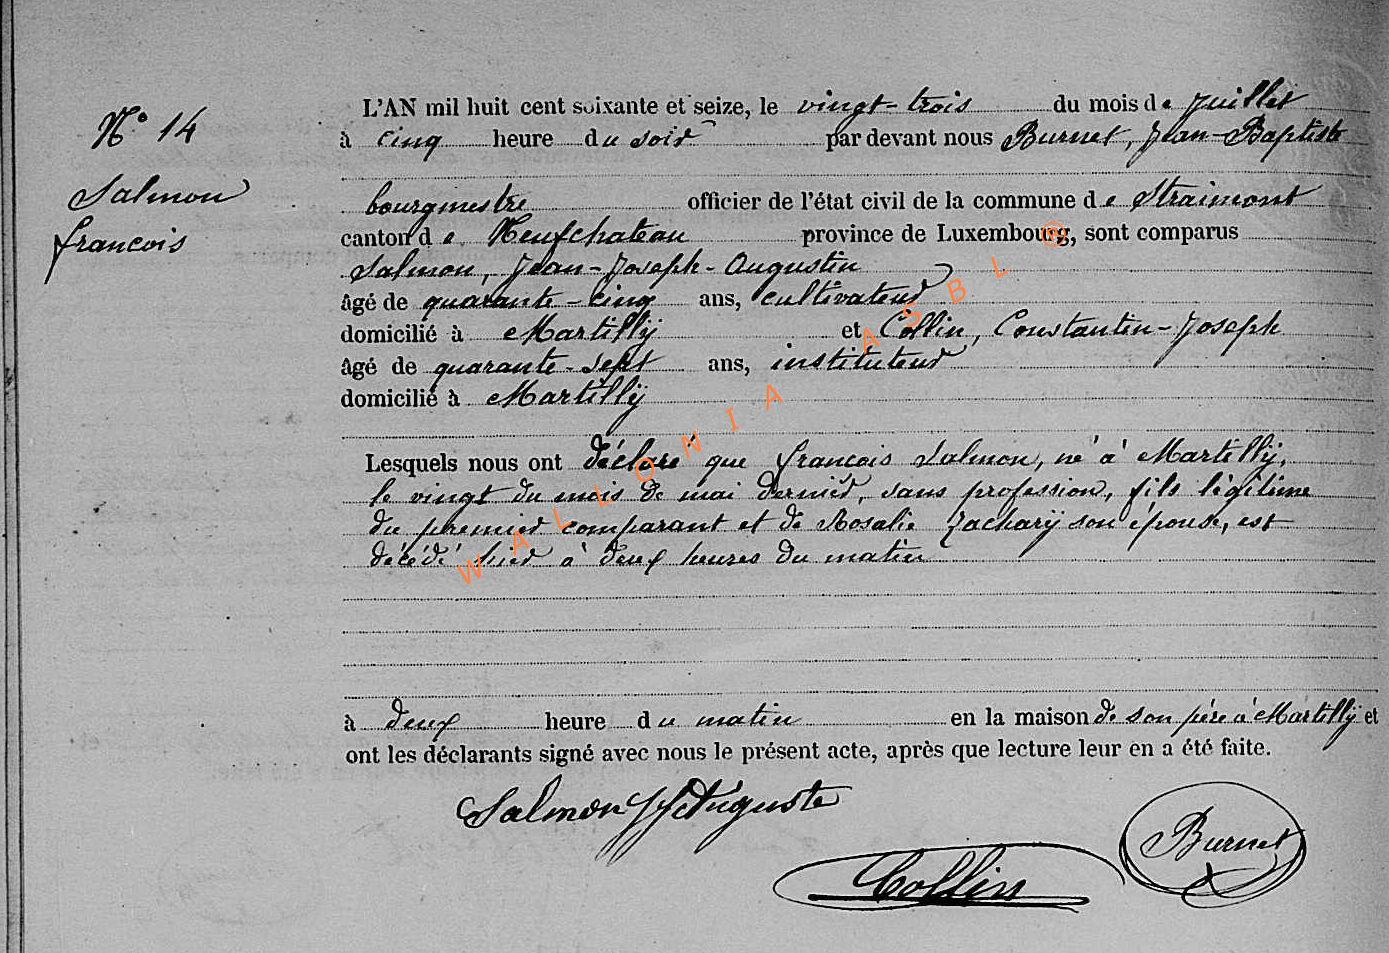 N° 14
Salmon
françois
L'AN mil huit cent soixante et seize, le vingt-trois du mois de Juillet
à cinq heure du soir par devant nous Burnet, Jean-Baptiste
bourgmestre officier de l'état civil de la commune de Straimont
canton de Neufchateau province de Luxembourg, sont comparus
Salmon, Jean-Joseph-Augustin
âgé de quarante-cinq ans, cultivateur
domicilié à Martilly et Collin, Constantin-Joseph
âgé de quarante-sept ans, instituteur
domicilié à Martilly
Lesquels nous ont déclaré que françois Salmon, né à Martilly,
le vingt du mois de mai dernier, sans profession, fils légitime
du premier comparant et de Rosalie Zachary son épouse, est
décédé hier à deux heures du matin
à deux heure du matin en la maison de son père à Martilly et
ont les déclarants signé avec nous le présent acte, après que lecture leur en a été faite.
Salmon JJAuguste
Collin
Burnet
WALLONIA ASBL ®